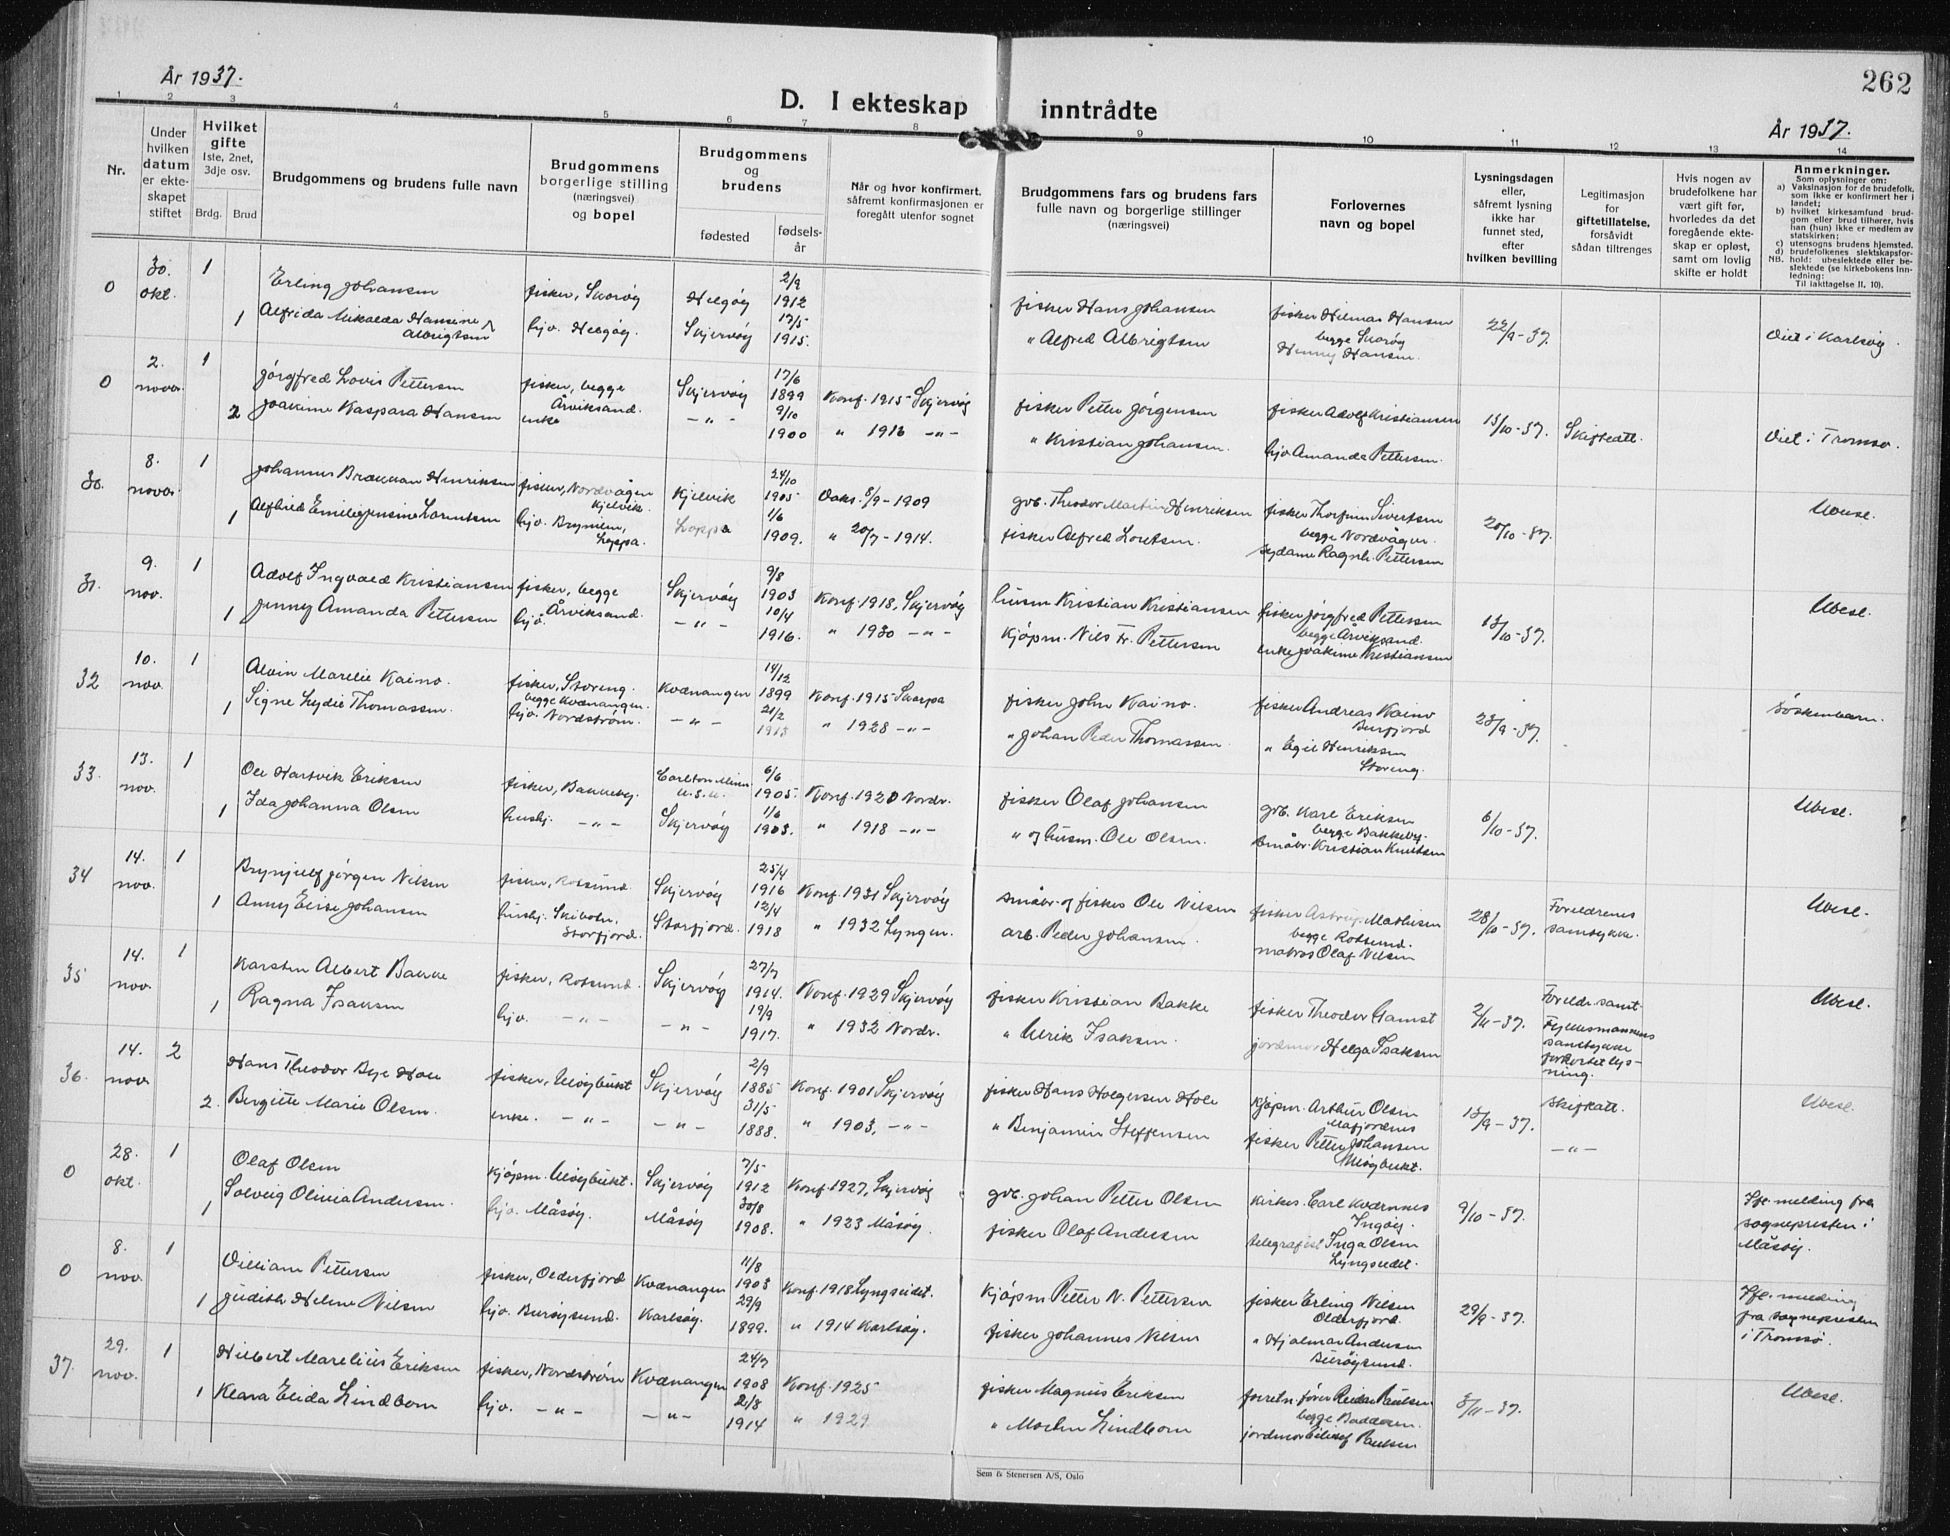 262
År 1937.
År 1937.
D. I ekteskap inntrådte
1 2 3 4 5 6 7 8 9 10 11 12 13 14
Nr.
Under hvilken datum er ekteskapet stiftet
Hvilket gifte
1ste, 2net, 3dje osv.
Brdg. Brud
Brudgommens og brudens fulle navn
Brudgommens borgerlige stilling (næringsvei) og bopel
Brudgommens og brudens
fødested
fødselsår
Når og hvor konfirmert, såfremt konfirmasjonen er foregått utenfor sognet
Brudgommens fars og brudens fars fulle navn og borgerlige stillinger (næringsvei)
Forlovernes navn og bopel
Lysningsdagen eller, såfremt lysning ikke har funnet sted, efter hvilken bevilling
Legitimasjon for giftetillatelse, forsåvidt sådan tiltrenges
Hvis nogen av brudefolkene har vært gift før, hvorledes da det foregående ekteskap er opløst, samt om lovlig skifte er holdt
Anmerkninger.
Som oplysninger om:
a) Vaksinasjon for de brudefolk, som ikke er konfirmert her i landet;
b) hvilket kirkesamfund brudgom eller brud tilhører, hvis han (hun) ikke er medlem av statskirken;
c) utensogns brudens hjemsted.
d) brudefolkenes slektskapsforhold: ubeslektede eller beslektede (se kirkebokens Innledning:
NB.
Til iakttagelse II, 10).
0 30. okt. 1 Erling Johansen fisker, Skorøy Helgøy 2/9 1912 fisker Hans Johansen fisker Hilmar Hansen 22/9-37. Viet i Karlsøy.
1 Alfrida Mikalda Hansine Albrigtsen hjv. Helgøy. Skjervøy 17/5 1915. " Alfred Albrigtsen begge Skorøy Henny Hansen.
0 2. novbr. 1 Jørgfred Lovis Pettersen fisker, begge Årviksand. Skjervøy 17/6 1899 Konf. 1915 Skjervøy fisker Petter Jørgensen fisker Adolf Kristiansen 13/10-37. Skifteatt. Viet i Tromsø.
2 Joakime Kaspara Hansen enke -"- 9/10 1900 " 1916 -"- " Kristian Johansen. hjv. Amanda Pettersen.
30. 8. novbr. 1 Johannes Brakman Henriksen fisker, Nordvågen Kjelvik. Kjelvik 24/10 1905 Vaks. 8/9-1909 gvb. Theodor Martin Henriksen fisker Thorfinn Sivertsen 20/10-37. Ubesl.
1 Alfhild Emilie Jensine Lorentsen hjv. Brynilen, Loppa. Loppa 1/6 1909. " 20/7-1914. fisker Alfred Lorentsen. begge Nordvågen. sydame Ragnh. Pettersen
31. 9. nov. 1 Adolf Ingvald Kristiansen fisker, begge Årviksand. Skjervøy 9/8 1903 Konf. 1918, Skjervøy husm. Kristian Kristiansen fisker Jørgfred Pettersen 13/10-37. Ubesl.
1 Jenny Amanda Pettersen hjv. -"- 10/4 1916. " 1930 -"- Kjøpm. Nils Fr. Pettersen begge Årviksand. enke Joakime Kristiansen
32 10. nov. 1 Alvin Marelie Kaino. fisker, Storeng. Kvænangen 14/12 1899 Konf. 1915 Skorpa fisker John Kaino. fisker Andreas Kaino Burfjord 23/9-37. Søskenbarn.
1 Signe Lydie Thomassen. begge Kvænangen. hjv. Nordstrøm. -"- 21/2 1913 " 1928 -"- " Johan Peder Thomassen. " Egil Henriksen Storeng.
33 13. nov. 1 Ole Hartvik Eriksen fisker, Bakkeby. Carlton Minn U.S.A. 6/6 1905. Konf. 1920 Nordr. fisker Olaf Johansen gvb. Karl Eriksen 6/10-37. Ubesl.
1 Ida Johanna Olsen hushj. -"- Skjervøy 1/6 1903. " 1918 -"- " og husm. Ole Olsen. begge Bakkeby. småbr. Kristian Knutsen
34 14. nov. 1 Brynjulf Jørgen Nilsen fisker, Rotsund. Skjervøy 25/4 1916 Konf. 1931 Skjervøy småbr. og fisker Ole Nilsen fisker Astrup Mathisen 28/10-37. Foreldrenes samtykke. Ubesl.
1 Anny Elise Johansen hushj. Skibotn, Storfjord. Storfjord. 12/4 1918 " 1932 Lyngen. arb. Peder Johansen. begge Rotsund. matros Olaf Nilsen
35 14. nov. 1 Karsten Albert Bakke fisker, Rotsund. Skjervøy 27/7 1914. Konf. 1929 Skjervøy fisker Kristian Bakke fisker Theodor Gamst 2/11-37. Foreldr. samt. Fylkesmannens samtykke forkortet lysning. Ubesl.
1 Ragna Isaksen hjv. -"- -"- 19/9 1917. " 1932 Nordr. " Ulrik Isaksen. jordmor Helga Isaksen
36. 14. nov. 2 Hans Theodor Bye Hole fisker, Uløybukt Skjervøy 2/9 1885 Konf. 1901 Skjervøy fisker Hans Holgersen Hole Kjøpm. Arthur Olsen 13/9-37. Skifteatt. Ubesl.
2. Birgitte Marie Olsen. enke. -"- -"- 31/5 1888. " 1903, -"- " Benjamin Steffensen fisker Petter Johansen Uløybukt. -"-
0 28. okt. 1 Olaf Olsen kjøpm. Uløybukt. Skjervøy 7/5 1912 Konf. 1927, Skjervøy gvb. Johan Petter Olsen kirkes. Carl Kværnnes Ingøy. 9/10-37. Ifl. melding fra sognepresten i Måsøy.
1 Solveig Olivia Andersen. hjv. Måsøy. Måsøy 30/8 1908. " 1923 Måsøy. fisker Olaf Andersen telegrafist Inga Olsen Lyngseidet.
0 8. nov. 1 William Pettersen fisker, Olderfjord Kvænangen 11/8 1903 Konf. 1918 Lyngseidet. Kjøpm Petter N. Pettersen fisker Erling Nilsen Olderfjord. 29/9-37. Ifl. melding fra sognepresten i Tromsø.
1 Judith Helene Nilsen hjv. Burøysund. Karlsøy. 29/9 1899. " 1914 Karlsøy. fisker Johannes Nilsen " Hjalmar Andersen Burøysund.
37. 29. nov. 1 Hilbert Marelius Eriksen fisker, Nordstrøm Kvænangen 24/7 1908 Konf. 1925 fisker Magnus Eriksen forretn.fører Reidar Paulsen 3/11-37. Ubesl.
1 Klara Elida Lindbom hjv. -"- -"- 21/8 1914 " 1929 " Morten Lindbom begge Badderen. jordmor Paulsen
Sem & Stenersen A/S, Oslo